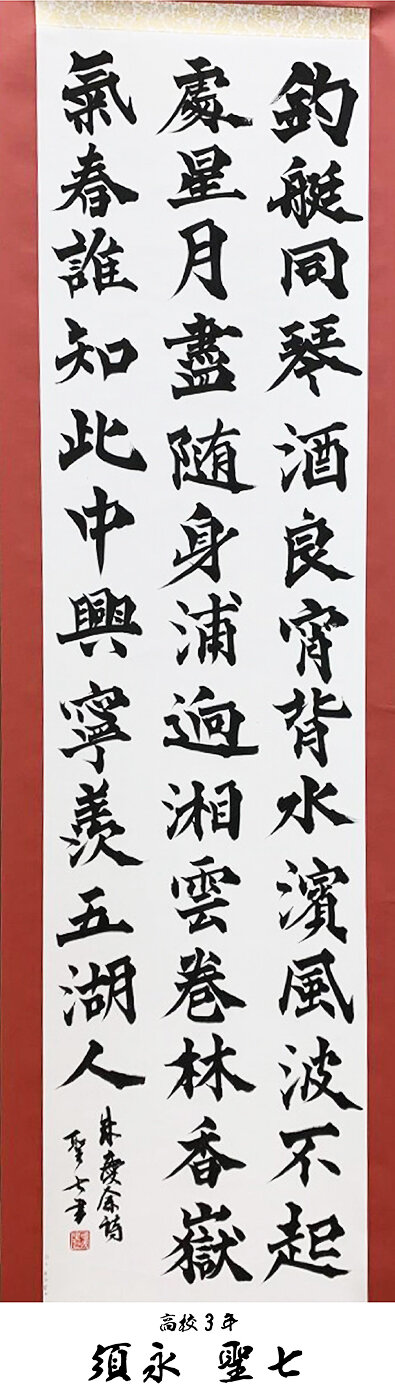 釣艇同琴酒良宵背水濱風波不起
處星月盡随身浦逈湘雲卷林香嶽
氣春誰知此中興寧羨五湖人
朱慶余詩
聖七書
高校3年
須永 聖七